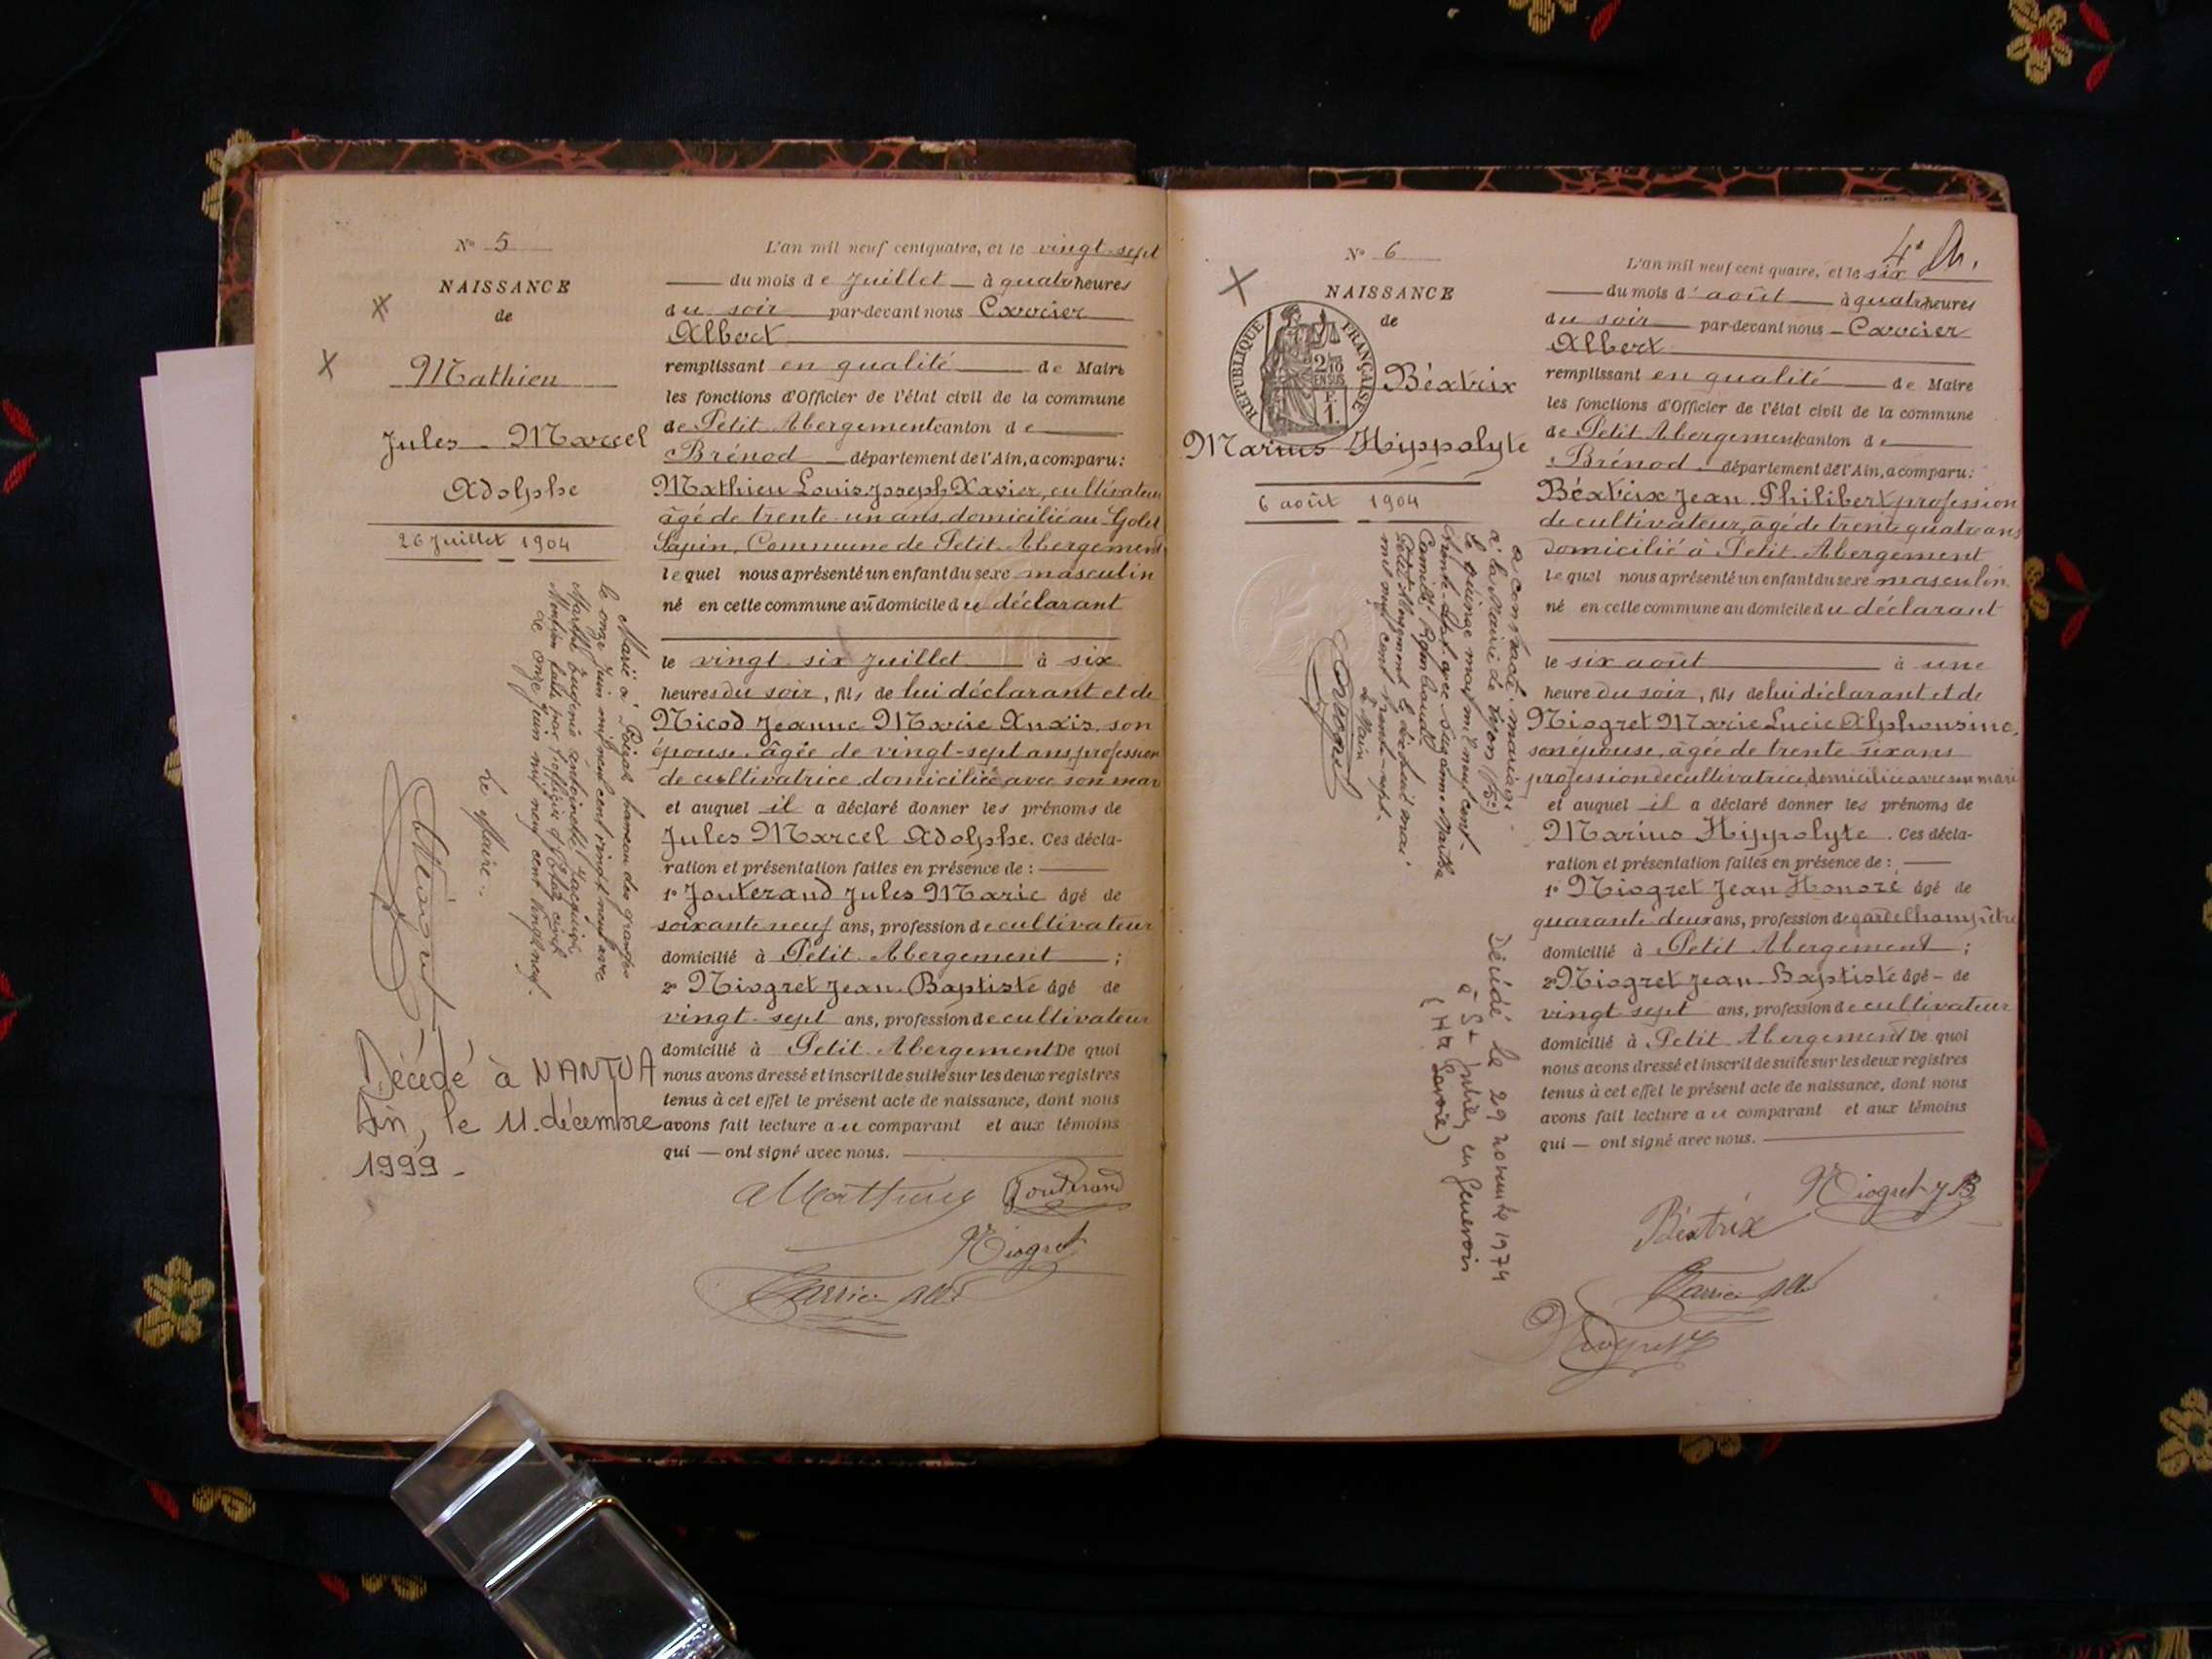 N° 5
NAISSANCE
de
Mathieu
Jules Marcel
Adolphe
26 Juillet 1904
Marié à Poizat hameau des granges
le onze Juin mil neuf cent vingt neuf avec
Marthe Eugénie Antoinette Jacquinod
Mention faite par l'officier d'Etat civil
le onze Juin mil neuf cent vingt neuf.
Le Maire :
Décédé à NANTUA
Ain, le 11 décembre
1999 -
L'an mil neuf cent quatre, et le vingt-sept
du mois de Juillet à quatre heures
du soir par-devant nous Carrier
Albert
remplissant en qualité de Maire
les fonctions d'Officier de l'état civil de la commune
de Petit Abergement canton de
Brénod département de l'Ain, a comparu :
Mathieu Louis Joseph Xavier, cultivateur
âgé de trente un ans, domicilié au Golet
Sapin, Commune de Petit Abergement
lequel nous a présenté un enfant du sexe masculin
né en cette commune au domicile du déclarant
le vingt six Juillet à six
heures du soir, fils de lui déclarant et de
Nicod Jeanne Marie Anaïs, son
épouse, âgée de vingt-sept ans, profession
de cultivatrice domiciliée avec son mari
et auquel il a déclaré donner les prénoms de
Jules Marcel Adolphe. Ces décla-
ration et présentation faites en présence de :
1° Jouterand Jules Marie âgé de
soixante neuf ans, profession de cultivateur
domicilié à Petit Abergement ;
2° Niogret Jean-Baptiste âgé de
vingt-sept ans, profession de cultivateur
domicilié à Petit Abergement De quoi
nous avons dressé et inscrit de suite sur les deux registres
tenus à cet effet le présent acte de naissance, dont nous
avons fait lecture au comparant et aux témoins
qui — ont signé avec nous.
Mathieu Jouterand
Niogret
Carrier Albt
N° 6
NAISSANCE
de
REPUBLIQUE FRANÇAISE
2/10
EN SUS
F.
1.
Béatrix
Marius Hippolyte
6 août 1904
a contracté mariage
à la Mairie de Lyon (5e)
le quinze mai mil neuf cent
trente-sept avec Suzanne Marthe
Petit Abergement le dix huit mai
mil neuf cent trente-sept.
Le Maire
Décédé le 29 novembre 1974
à St Julien en Genevois
(Hte Savoie)
4e
L'an mil neuf cent quatre, et le six
du mois d'août à quatre heures
du soir par-devant nous Carrier
Albert
remplissant en qualité de Maire
les fonctions d'Officier de l'état civil de la commune
de Petit Abergement canton de
Brénod département de l'Ain, a comparu :
Béatrix Jean Philibert profession
de cultivateur, âgé de trente quatre ans
domicilié à Petit Abergement
lequel nous a présenté un enfant du sexe masculin
né en cette commune au domicile du déclarant
le six août à une
heure du soir, fils de lui déclarant et de
Niogret Marie Lucie Alphonsine,
son épouse, âgée de trente six ans
profession de cultivatrice, domiciliée avec son mari
et auquel il a déclaré donner les prénoms de
Marius Hippolyte. Ces décla-
ration et présentation faites en présence de :
1° Niogret Jean Honoré âgé de
quarante deux ans, profession de garde champêtre
domicilié à Petit Abergement ;
2° Niogret Jean-Baptiste âgé - de
vingt sept ans, profession de cultivateur
domicilié à Petit Abergement De quoi
nous avons dressé et inscrit de suite sur les deux registres
tenus à cet effet le présent acte de naissance, dont nous
avons fait lecture au comparant et aux témoins
qui — ont signé avec nous.
Niogret J B
Béatrix
Carrier Albt
Niogret